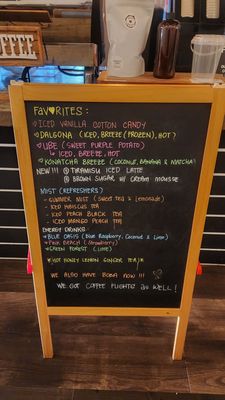 FAV♥RITES:
ICED VANILLA COTTON CANDY
DALGONA (ICED, BREEZE (FROZEN), HOT)
UBE (SWEET PURPLE POTATO)
↳ ICED, BREEZE, HOT
KONATCHA BREEZE (COCONUT, BANANA & MATCHA)
NEW!!! @ TIRAMISU ICED LATTE
@ BROWN SUGAR W/ CREAM MOUSSE
MIST (REFRESHERS)
- SUMMER MIST (SWEET TEA & LEMONADE)
- ICED HIBISCUS TEA
- ICED PEACH BLACK TEA
- ICED MANGO PEACH TEA
ENERGY DRINKS:
BLUE OASIS (Blue Raspberry, Coconut & Lime)
PINK BEACH (Strawberry)
GREEN FOREST (LIME)
HOT HONEY LEMON GINGER TEA
WE ALSO HAVE BOBA NOW!!!
WE GOT COFFEE FLIGHTS AS WELL!